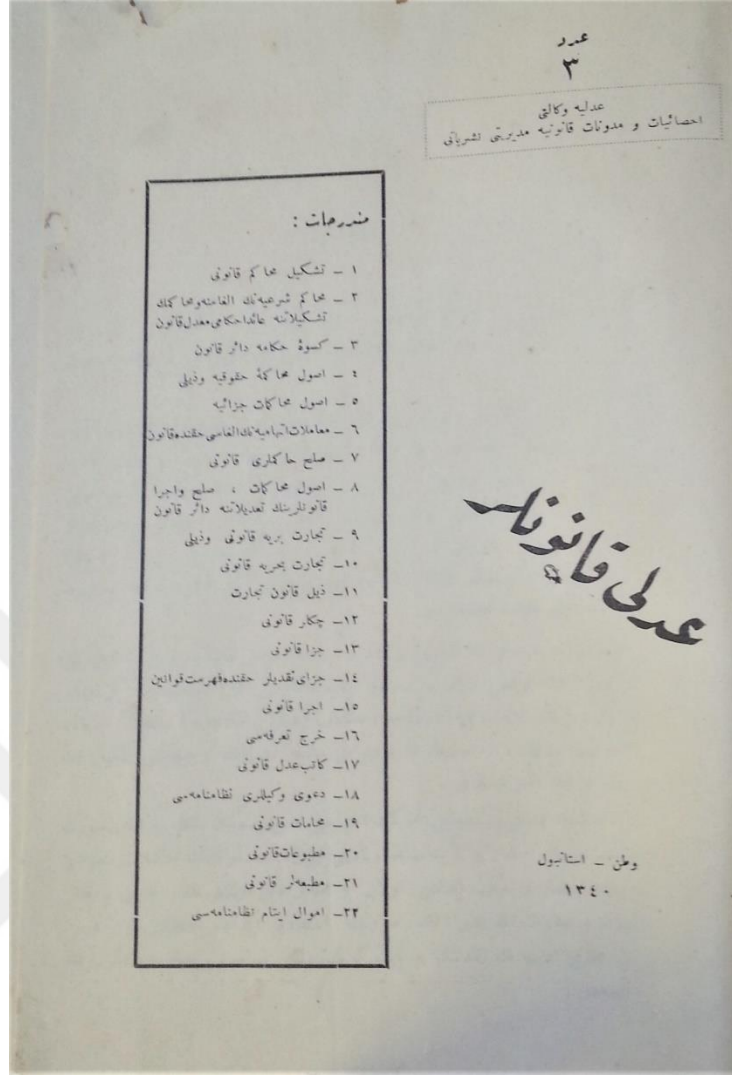 عدد
٣
عدليه وكالتى
احصائيات و مدونات قانونيه مديريتى نشرياتى
عدلى قانونلر
وطن ـ استانبول
١٣٤٠
مندرجات :
١ ـ تشكيل محاكم قانونى
٢ ـ محاكم شرعيه‌نك الغاسنه ومحاكمك
تشكيلاتنه عائد احكامى معدل قانون
٣ ـ كسوۀ حكامه دائر قانون
٤ ـ اصول محاكمۀ حقوقيه وذيلى
٥ ـ اصول محاكمات جزائيه
٦ ـ معاملات اتهاميه‌نك الغاسى حقنده قانون
٧ ـ صلح حاكملرى قانونى
٨ ـ اصول محاكمات ، صلح واجرا
قانونلرينك تعديلاتنه دائر قانون
٩ ـ تجارت بريه قانونى وذيلى
١٠ـ تجارت بحريه قانونى
١١ـ ذيل قانون تجارت
١٢ـ چكلر قانونى
١٣ـ جزا قانونى
١٤ـ جزاى نقديلر حقنده فهرست قوانين
١٥ـ اجرا قانونى
١٦ـ خرج تعرفه‌سى
١٧ـ كاتب عدل قانونى
١٨ـ دعوى وكيللرى نظامنامه‌سى
١٩ـ محامات قانونى
٢٠ـ مطبوعات قانونى
٢١ـ مطبعه‌لر قانونى
٢٢ـ اموال ايتام نظامنامه‌سى